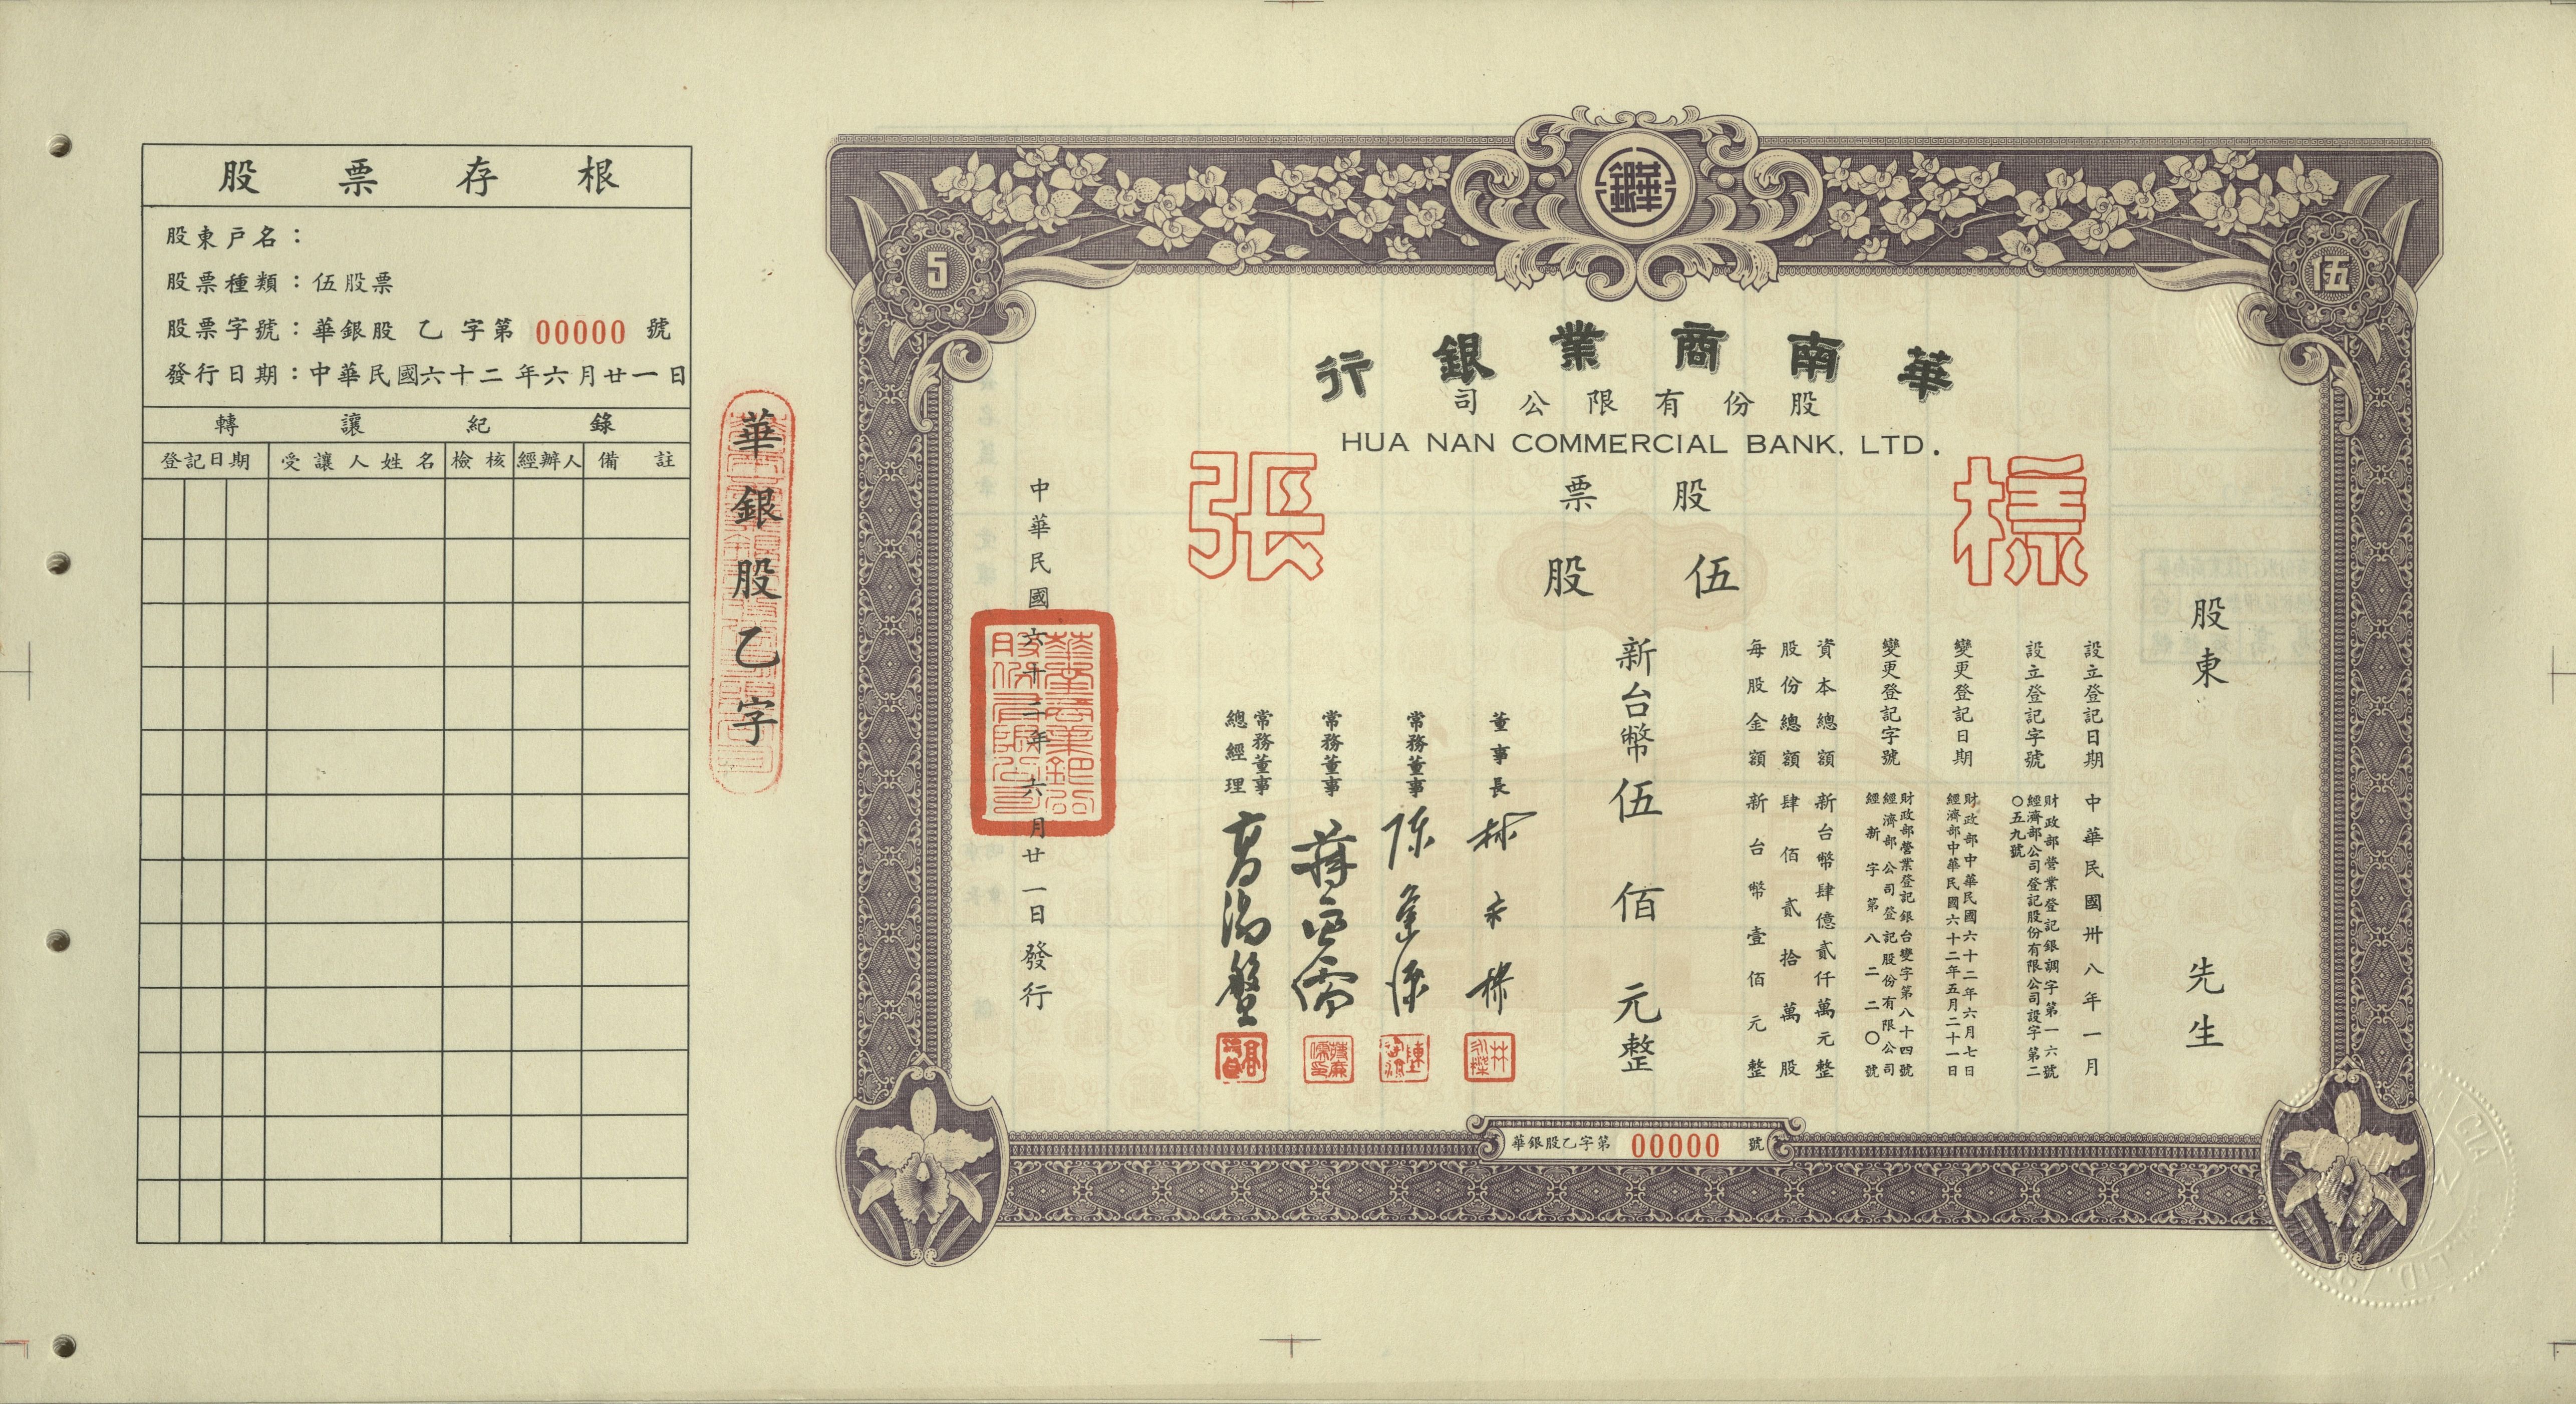 股票存根
股東戶名：
股票種類：伍股票
股票字號：華銀股 乙 字第 00000 號
發行日期：中華民國六十二年六月廿一日
轉讓紀錄
登記日期 受讓人姓名 檢核 經辦人 備註
華銀股乙字
5
華銀
伍
華南商業銀行
股份有限公司
HUA NAN COMMERCIAL BANK, LTD.
樣張
股票
伍股
股東 先生
設立登記日期 中華民國卅八年一月
設立登記字號 財政部營業登記銀調字第一六號
經濟部公司登記股份有限公司設字第二
〇五九號
變更登記日期 財政部中華民國六十二年六月七日
經濟部中華民國六十二年五月二十一日
變更登記字號 財政部營業登記銀台變字第八十四號
經濟部公司登記股份有限公司
經新字第八二二〇號
資本總額 新台幣肆億貳仟萬元整
股份總額 肆佰貳拾萬股
每股金額 新台幣壹佰元整
新台幣伍佰元整
董事長 林永樑
常務董事 陳逢源
常務董事
常務董事
總經理 高湯盤
中華民國六十二年六月廿一日發行
華南商業銀行股份有限公司
華銀股乙字第 00000 號